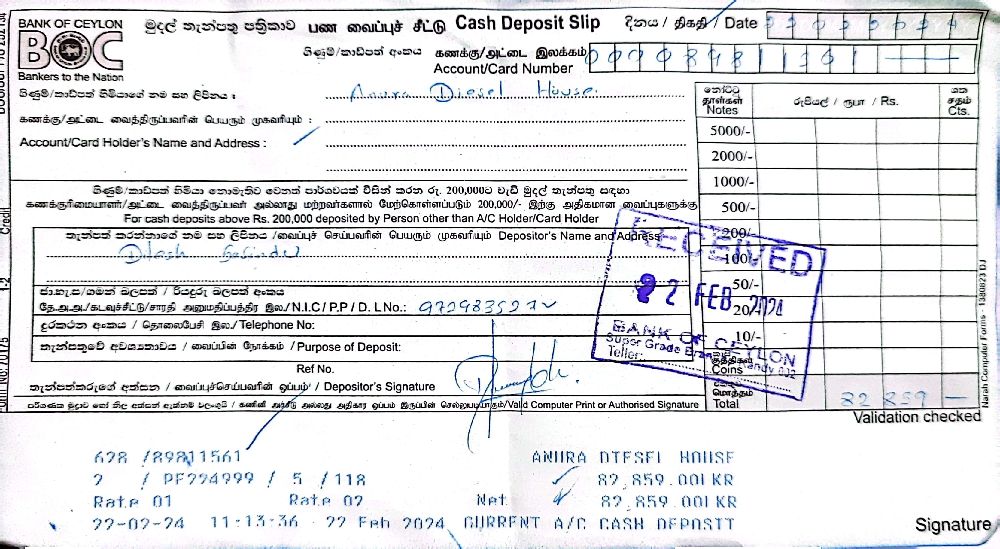 BANK OF CEYLON
BOC
Bankers to the Nation
මුදල් තැන්පතු පත්‍රිකාව பண வைப்புச் சீட்டு Cash Deposit Slip
දිනය / திகதி / Date 22022024
ගිණුම්/කාඩ්පත් අංකය கணக்கு/அட்டை இலக்கம்
Account/Card Number
ගිණුම්/කාඩ්පත් හිමියාගේ නම සහ ලිපිනය :
Anura Diesel House
கணக்கு/அட்டை வைத்திருப்பவரின் பெயரும் முகவரியும் :
Account/Card Holder's Name and Address :
නෝට්ටු தாள்கள் Notes
රුපියල් / ரூபா / Rs.
ශත சதம் Cts.
5000/-
2000/-
1000/-
500/-
200/-
100/-
50/-
20/-
10/-
ගිණුම්/කාඩ්පත් හිමියා නොමැතිව වෙනත් පාර්ශවයක් විසින් කරන රු. 200,000ට වැඩි මුදල් තැන්පතු සඳහා
கணக்குரிமையாளர்/அட்டை வைத்திருப்பவர் அல்லது மற்றவர்களால் மேற்கொள்ளப்படும் 200,000/- இற்கு அதிகமான வைப்புகளுக்கு
For cash deposits above Rs. 200,000 deposited by Person other than A/C Holder/Card Holder
තැන්පත් කරන්නාගේ නම සහ ලිපිනය /வைப்புச் செய்பவரின் பெயரும் முகவரியும் Depositor's Name and Address
ජා.හැ.ප/ගමන් බලපත්‍ර / රියදුරු බලපත්‍ර අංකය
தே.அ.அ/கடவுச்சீட்டு/சாரதி அனுமதிப்பத்திர இல./N.I.C/P.P/ D. L No.: 972983527V
දුරකථන අංකය / தொலைபேசி இல./ Telephone No:
තැන්පතුවේ අවශ්‍යතාවය / வைப்பின் நோக்கம் / Purpose of Deposit:
Ref No.
තැන්පත්කරුගේ අත්සන / வைப்புச்செய்பவரின் ஒப்பம் / Depositor's Signature
RECEIVED
22 FEB 2024
BANK OF CEYLON
Super Grade Branch Kandy 002
Teller:
Coins
மொத்தம்
Total 82 859 —
/Valid Computer Print or Authorised Signature
Validation checked
628 /89811561 ANURA DIESEL HOUSE
2 / PF224999 / 5 /118 82,859.00LKR
Rate 01 Rate 02 Net 82,859.00LKR
22-02-24 11-13-36 22 Feb 2024 CURRENT A/C CASH DEPOSIT
Signature
Narah Computer Forms - 1380823 DJ